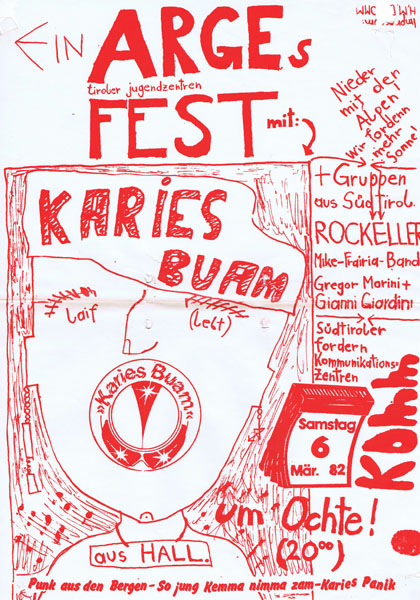 EIN ARGEs
tiroler jugendzentren
FEST
mit:
Nieder
mit der
Alpen!
Wir fordern
mehr
Sonne!
KARIES
BUAM
laif
(lebt)
»Karies Buam«
aus HALL.
+ Gruppen
aus Südtirol.
ROCKELLER
Mike-Frairia-Band
Gregor Marini +
Gianni Giardini
Südtiroler
fordern
Kommunikations-
zentren
Komm
Samstag
6
Mär. 82
um Ochte!
(20⁰⁰)
Punk aus den Bergen - So jung Kemma nimma zam - Karies Panik